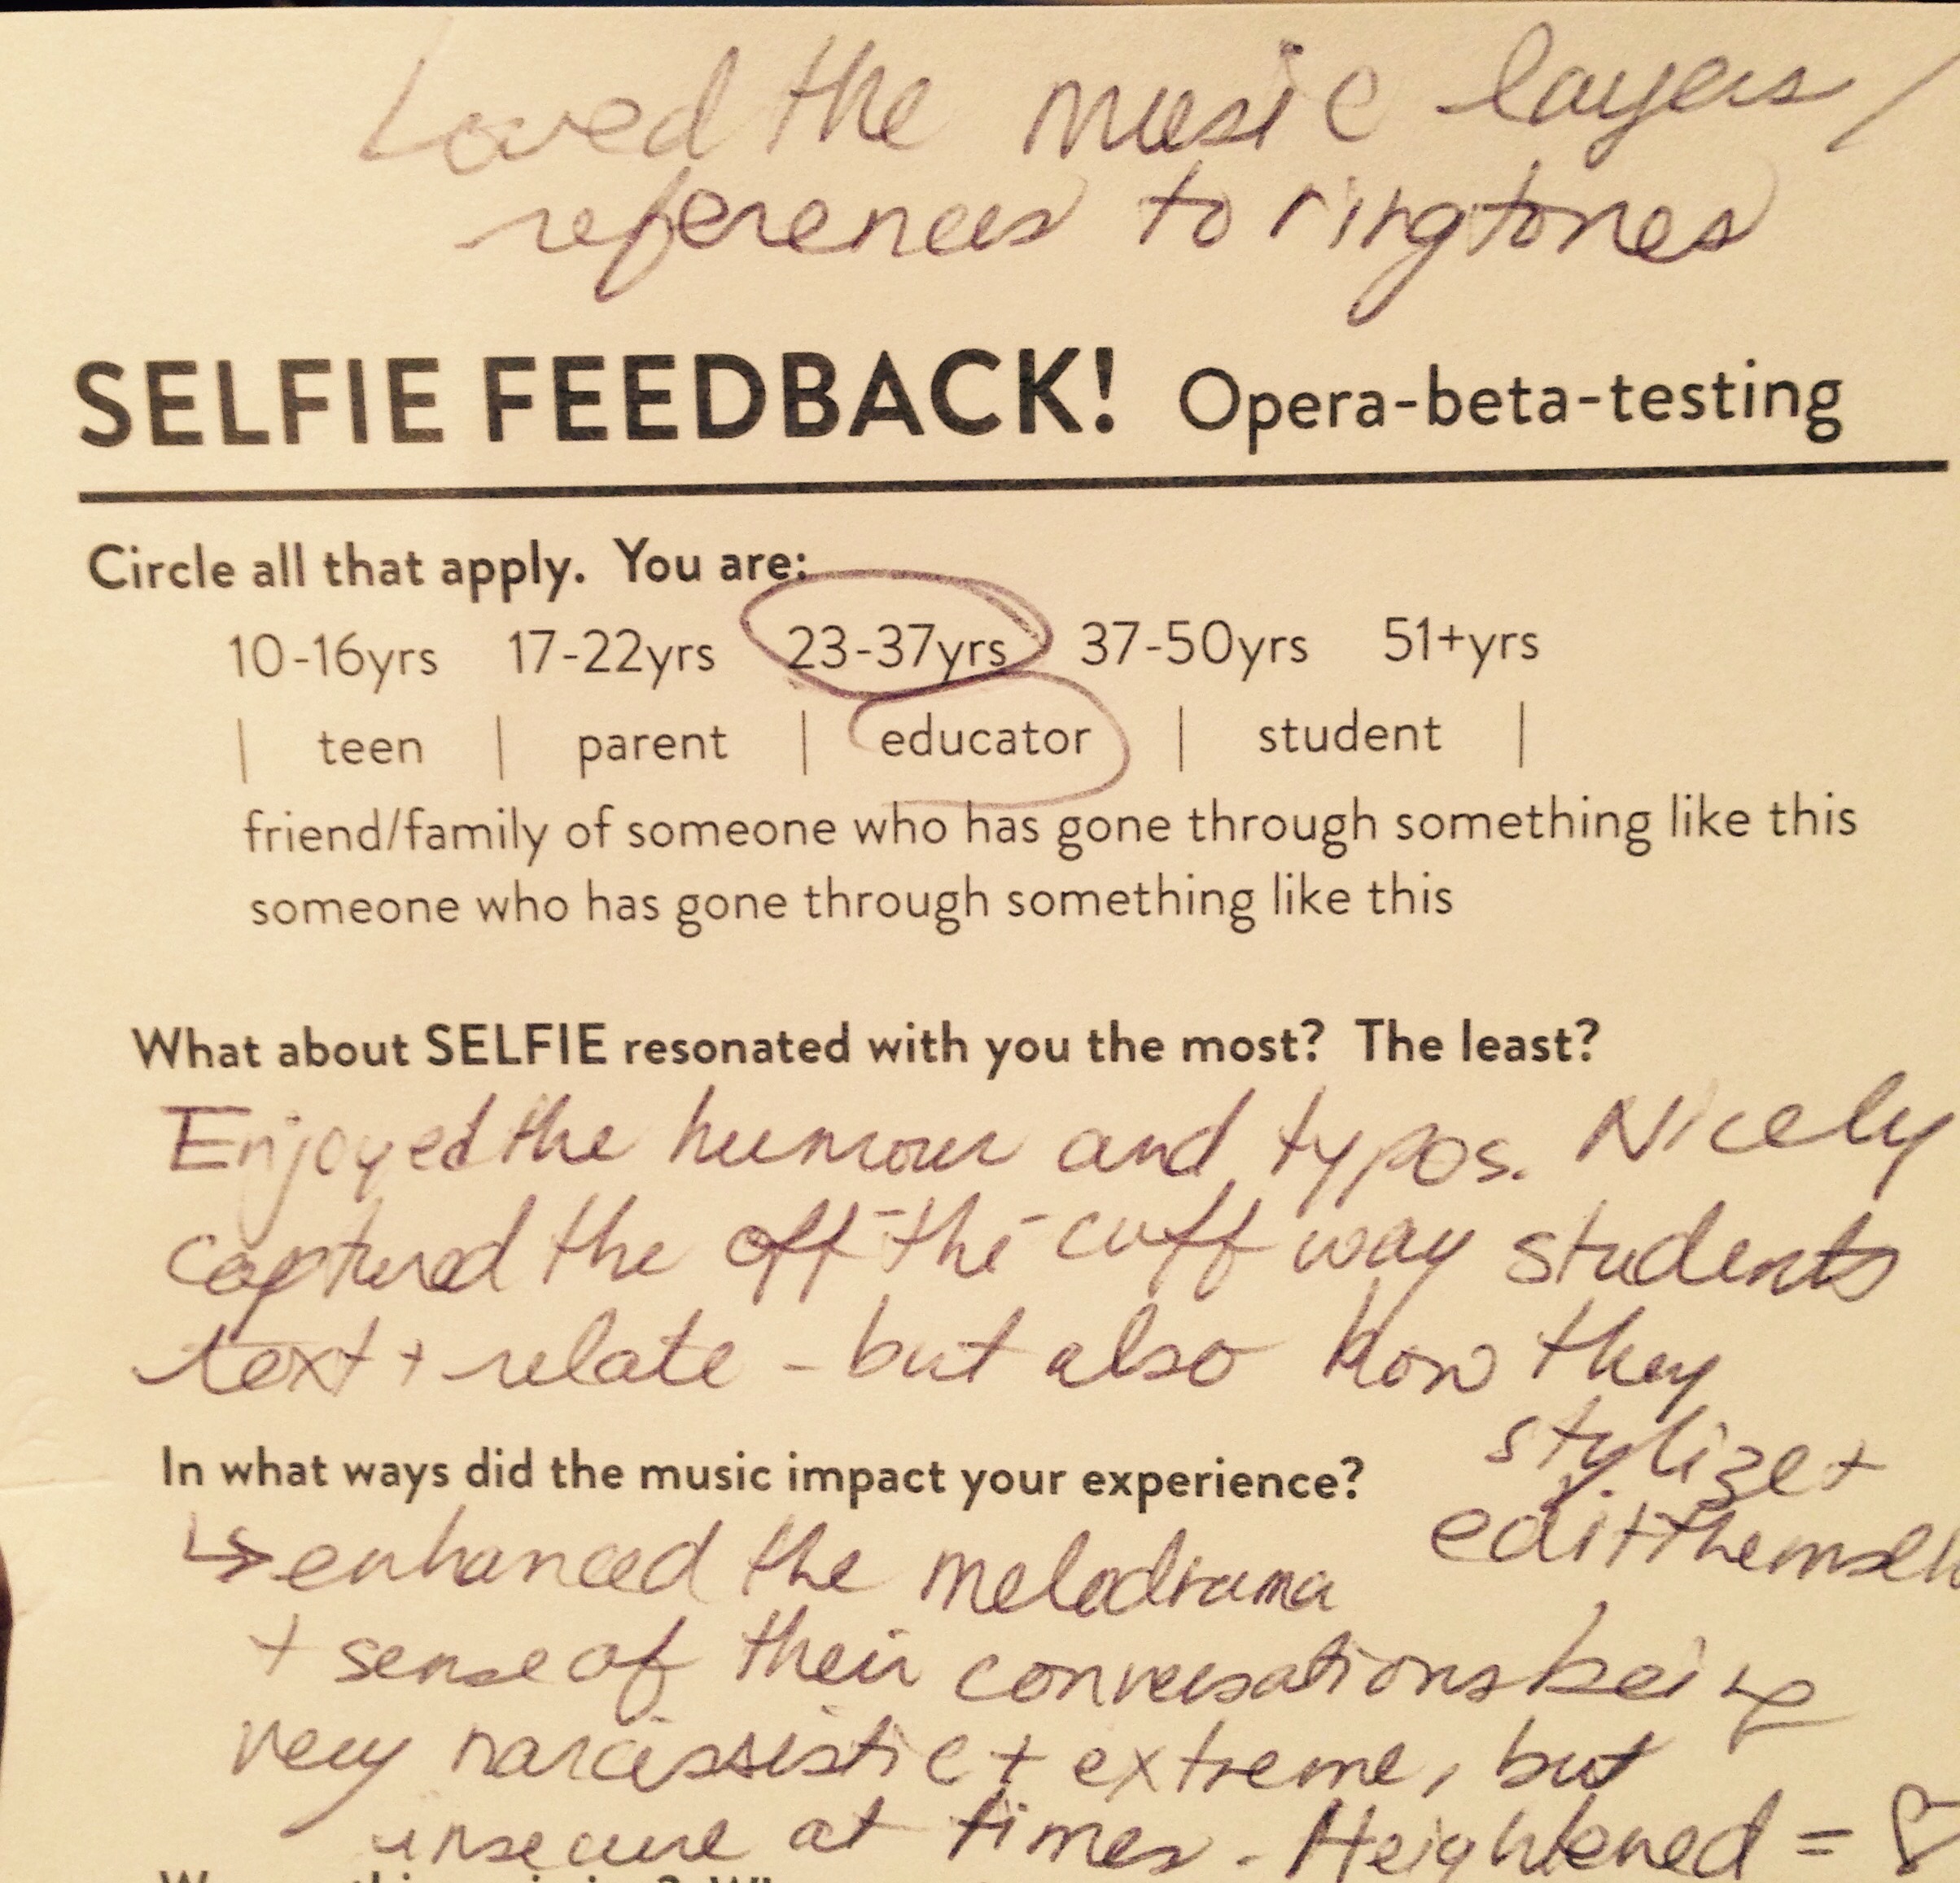 Loved the music layers/
references to ringtones
SELFIE FEEDBACK! Opera-beta-testing
Circle all that apply. You are:
10-16yrs 17-22yrs 23-37yrs 37-50yrs 51+yrs
| teen | parent | educator | student |
friend/family of someone who has gone through something like this
someone who has gone through something like this
What about SELFIE resonated with you the most? The least?
Enjoyed the humour and typos. Nicely
captured the off-the-cuff way students
text + relate - but also how they
stylize +
edit themselv
In what ways did the music impact your experience?
↳ enhanced the melodrama
+ sense of their conversations being
very narcissistic + extreme, but
insecure at times. Heightened = ♡